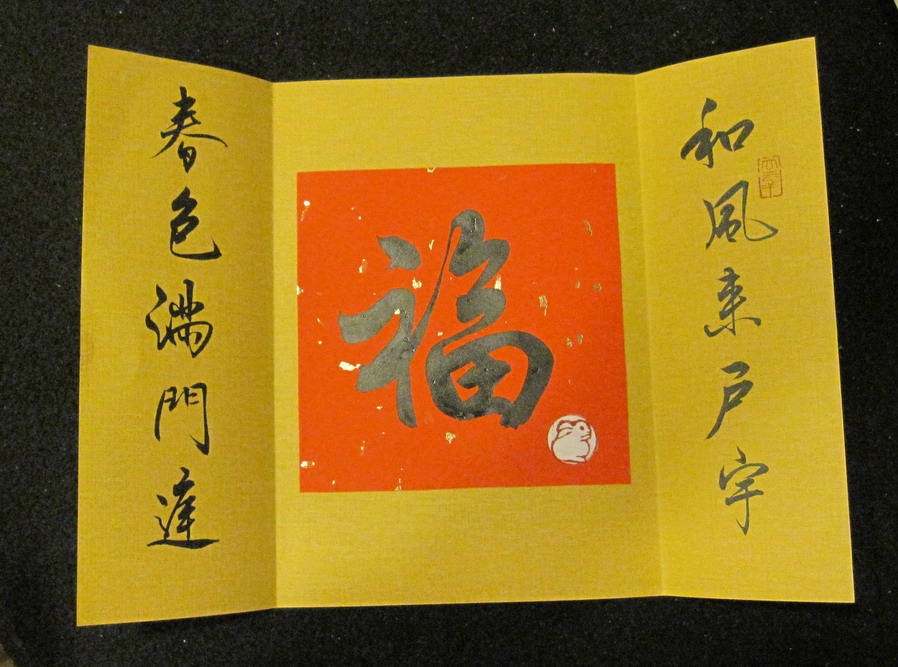 和風来戶宇
福
春色滿門達